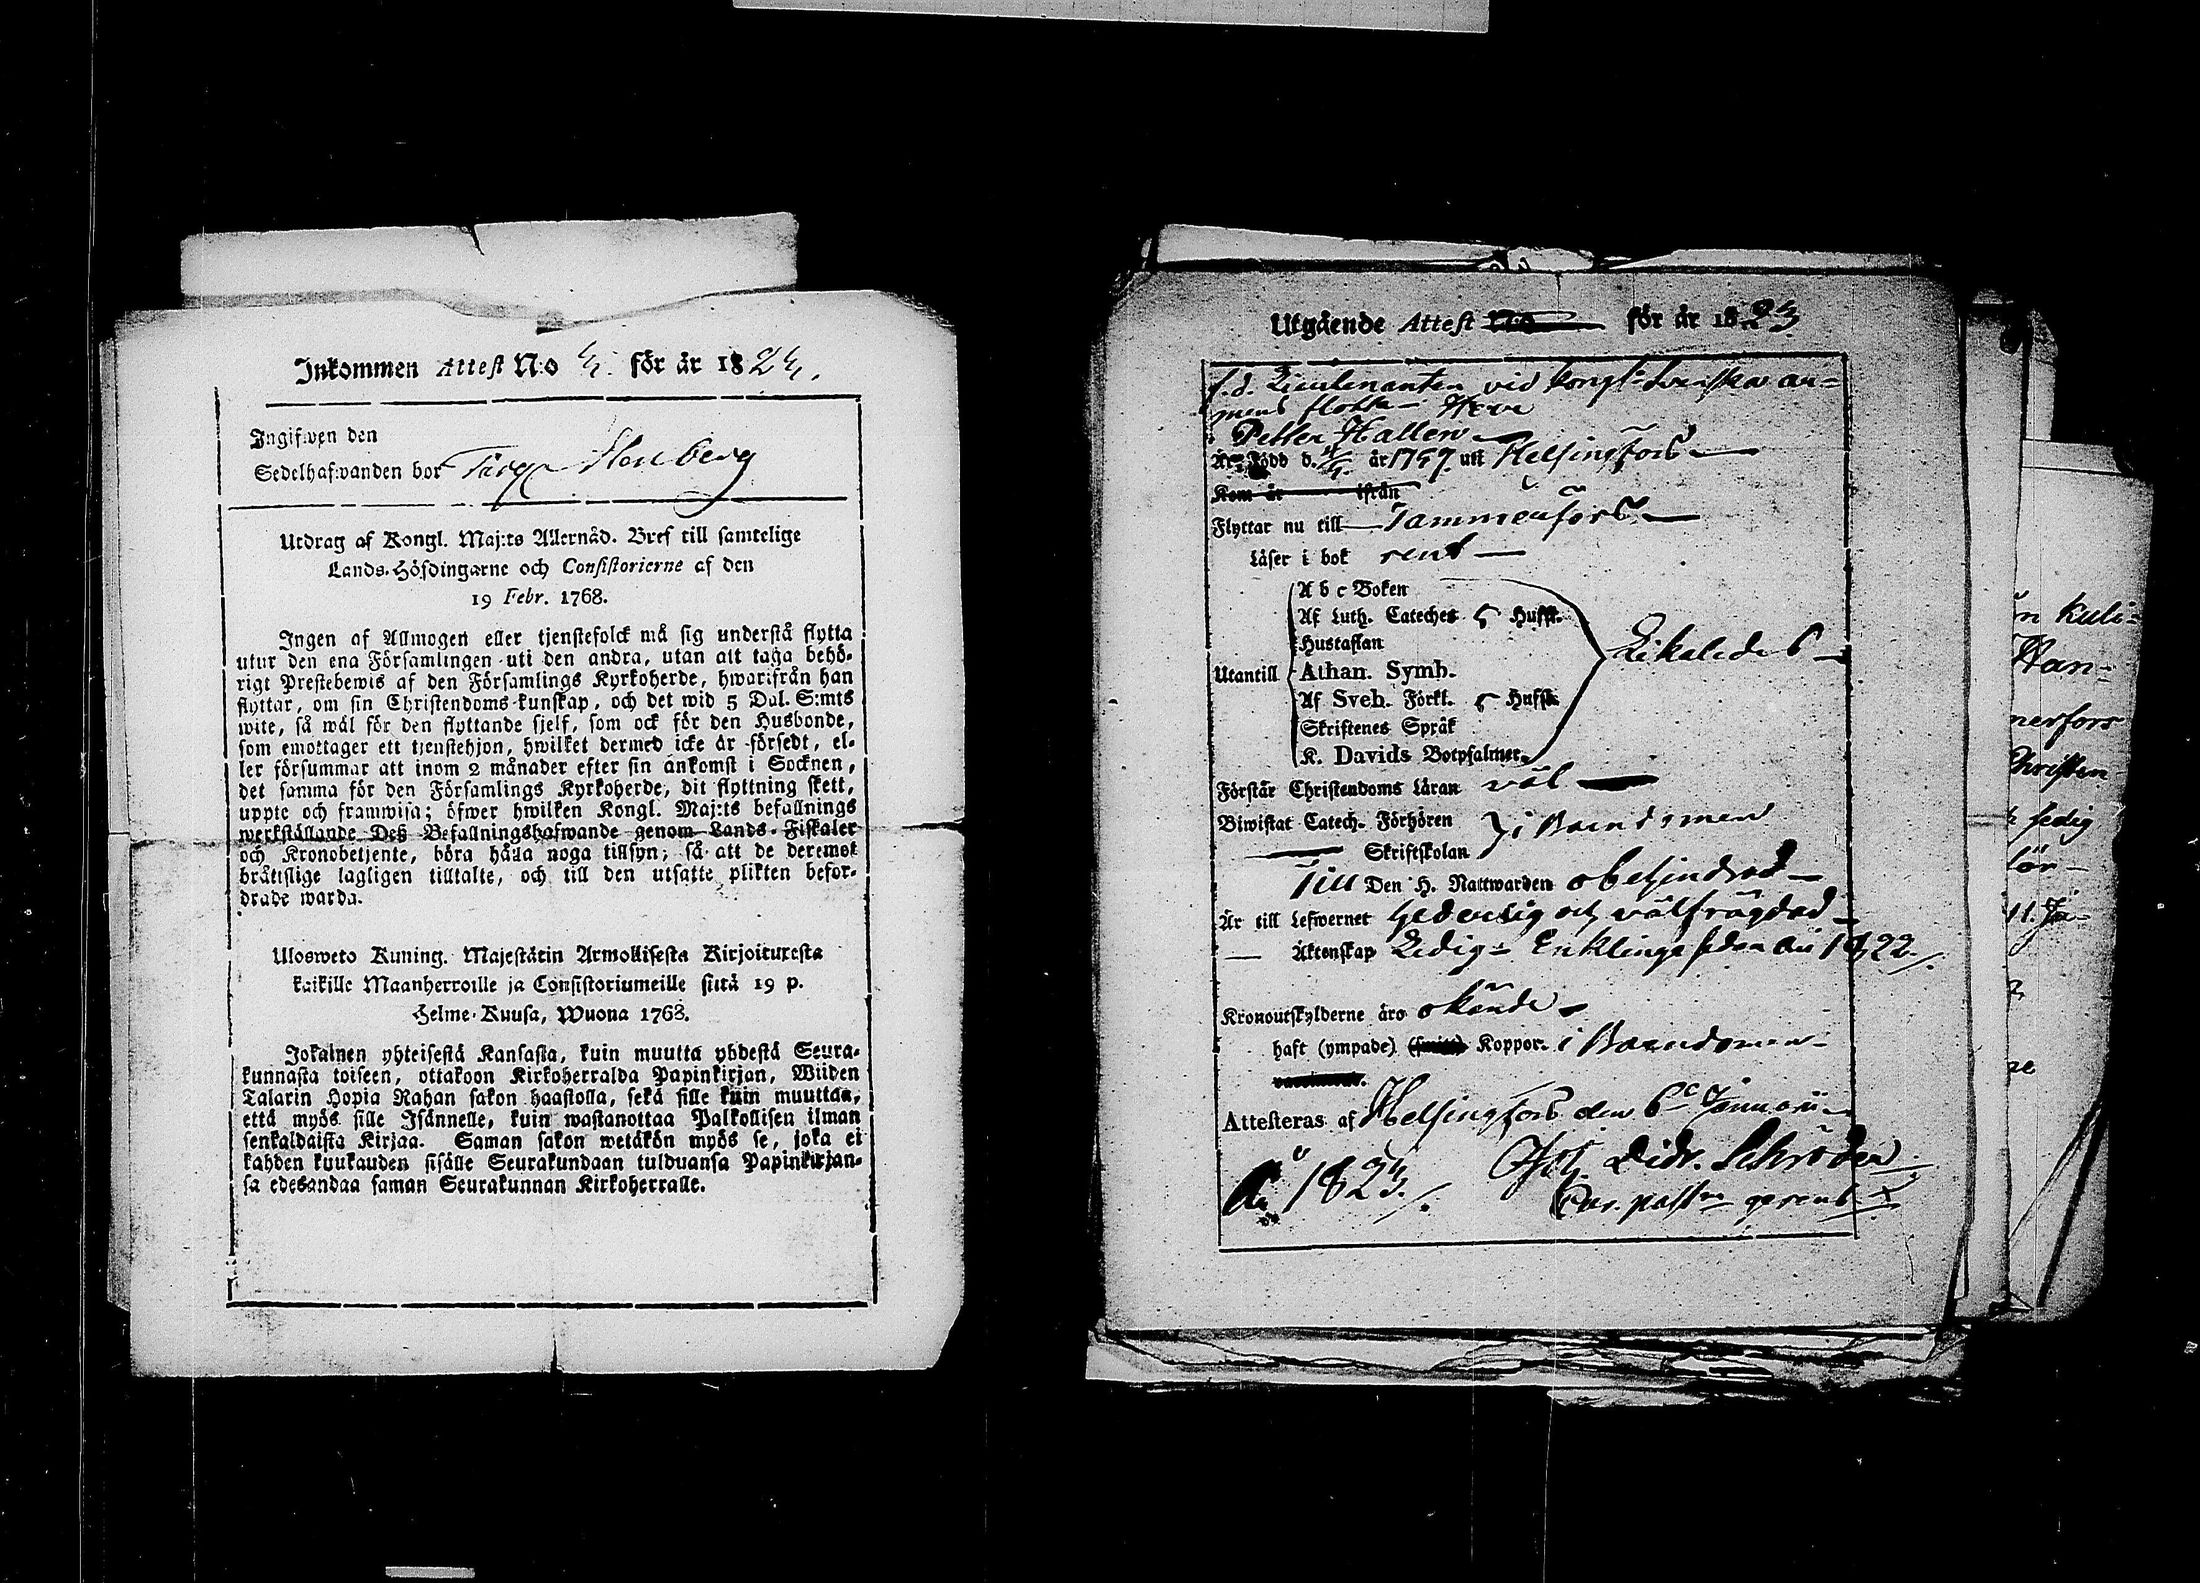 Inkommen Attest N:o 4. för år 1824.
Ingifwen den
Sedelhafwanden bor
Utdrag af Kongl. Maj:ts Allernåd. Bref till samtelige
Lands-Höfdingarne och Consistorierne af den
19 Febr. 1768.
Ingen af Allmogen eller tjenstefolck må sig understå flytta
utur den ena Församlingen uti den andra, utan att taga behö-
rigt Prestebewis af den Församlings Kyrkoherde, hwarifrån han
flyttar, om sin Christendoms-kunskap, och det wid 5 Dal. S:mts
wite, så wäl för den flyttande sjelf, som ock för den Husbonde,
som emottager ett tjenstehjon, hwilket dermed icke är försedt, el-
ler försummar att inom 2 månader efter sin ankomst i Socknen,
det samma för den Församlings Kyrkoherde, dit flyttning skett,
uppte och framwisa; öfwer hwilken Kongl. Maj:ts befallnings
werkställande Deß Befallningshafwande genom Lands-Fiskaler
och Kronobetjente, böra hålla noga tillsyn; så att de deremot
brättslige lagligen tilltalte, och till den utsatte plikten befor-
drade warda.
Ulosweto Kuning. Majestätin Armollisesta Kirjoituxesta
kaikille Maanherroille ja Consistoriumeille siitä 19 p.
Helme-Kuusa, Wuona 1768.
Jokainen yhteisestä Kansasta, kuin muutta yhdestä Seura-
kunnasta toiseen, ottakoon Kirkoherralda Papinkirjan, Wiiden
Talarin Hopia Rahan sakon haastolla, sekä sille kuin muuttaa,
että myös sille Isännelle, kuin wastanottaa Palkollisen ilman
senkaldaista Kirjaa. Saman sakon wetäkön myös se, joka ei
kahden kuukauden sisälle Seurakundaan tulduansa Papinkirjan-
sa edesandaa saman Seurakunnan Kirkoherralle.
Utgående Attest N:o för år 1823
f. d. Lieutenanten vid Kongl. Svenska ar-
mens flotta Herr
Petter Hallen
Är Född d. år 1797 uti Helsingfors
Kom år ifrån
Flyttar nu till Tammerfors
Läser i bok rent
A b c Boken
Af Luth. Cateches 5 Hufst.
Hustaflan
Utantill Athan. Symb. Likaledes
Af Sveb. Förkl. 5 Hufst.
Skriftenes Språk
K. Davids Botpsalmer.
Förstår Christendoms Läran väl
Biwistat Catech. Förhören i Barndomen
Skriftskolan
Till Den H. Nattwarden obehindrad
Är till Lefwernet hederlig och välfrägdad
Äktenskap Ledig Enkling sedan år 1822.
Kronoutskylderne äro okände
haft (ympade) Koppor. i Barndomen
Attesteras af Helsingfors den 6e Januarii
År 1823. Joh. Didr. Schröder
gerens
n kuli-
Han-
nerfors
Christen
ledig
för-
11. Ja-